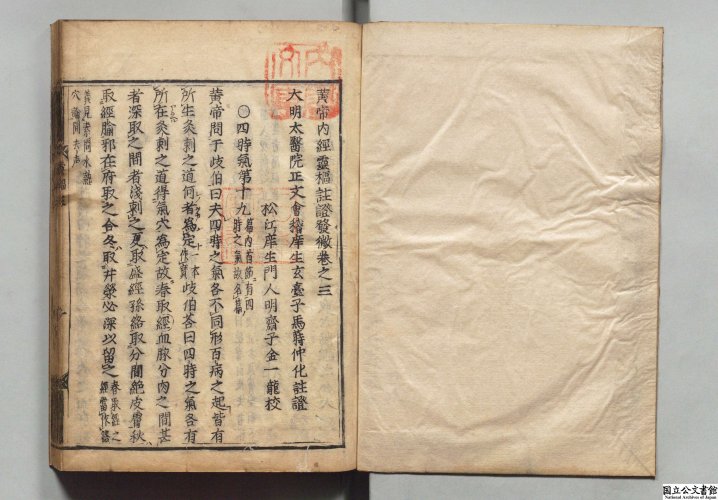 黃帝內經靈樞註證發微卷之三
大明太醫院正文會稽庠生玄臺子馬蒔仲化註證
松江庠生門人明齋子金一龍校
○四時氣第十九 篇內首節有四時之氣故名篇
黃帝問于岐伯曰夫四時之氣各不同形百病之起皆有
所生灸刺之道何者為定 一本作寶 岐伯答曰四時之氣各有
所在灸刺之道得氣穴為定故春取經血脉分肉之間甚
者深取之間者淺刺之夏取盛經孫絡取分間絕皮膚秋
取經腧邪在府取之合冬取井滎必深以留之 春取經之經當作絡
義見素問水熱穴論間去声
国立公文書館
National Archives of Japan